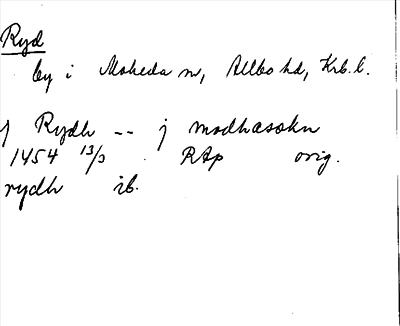 Ryd
by i Moheda sn, Allbo hd, Krb. l.
j Rydh -- j modhasokn
1454 13/3 . RAp orig.
rydh ib.